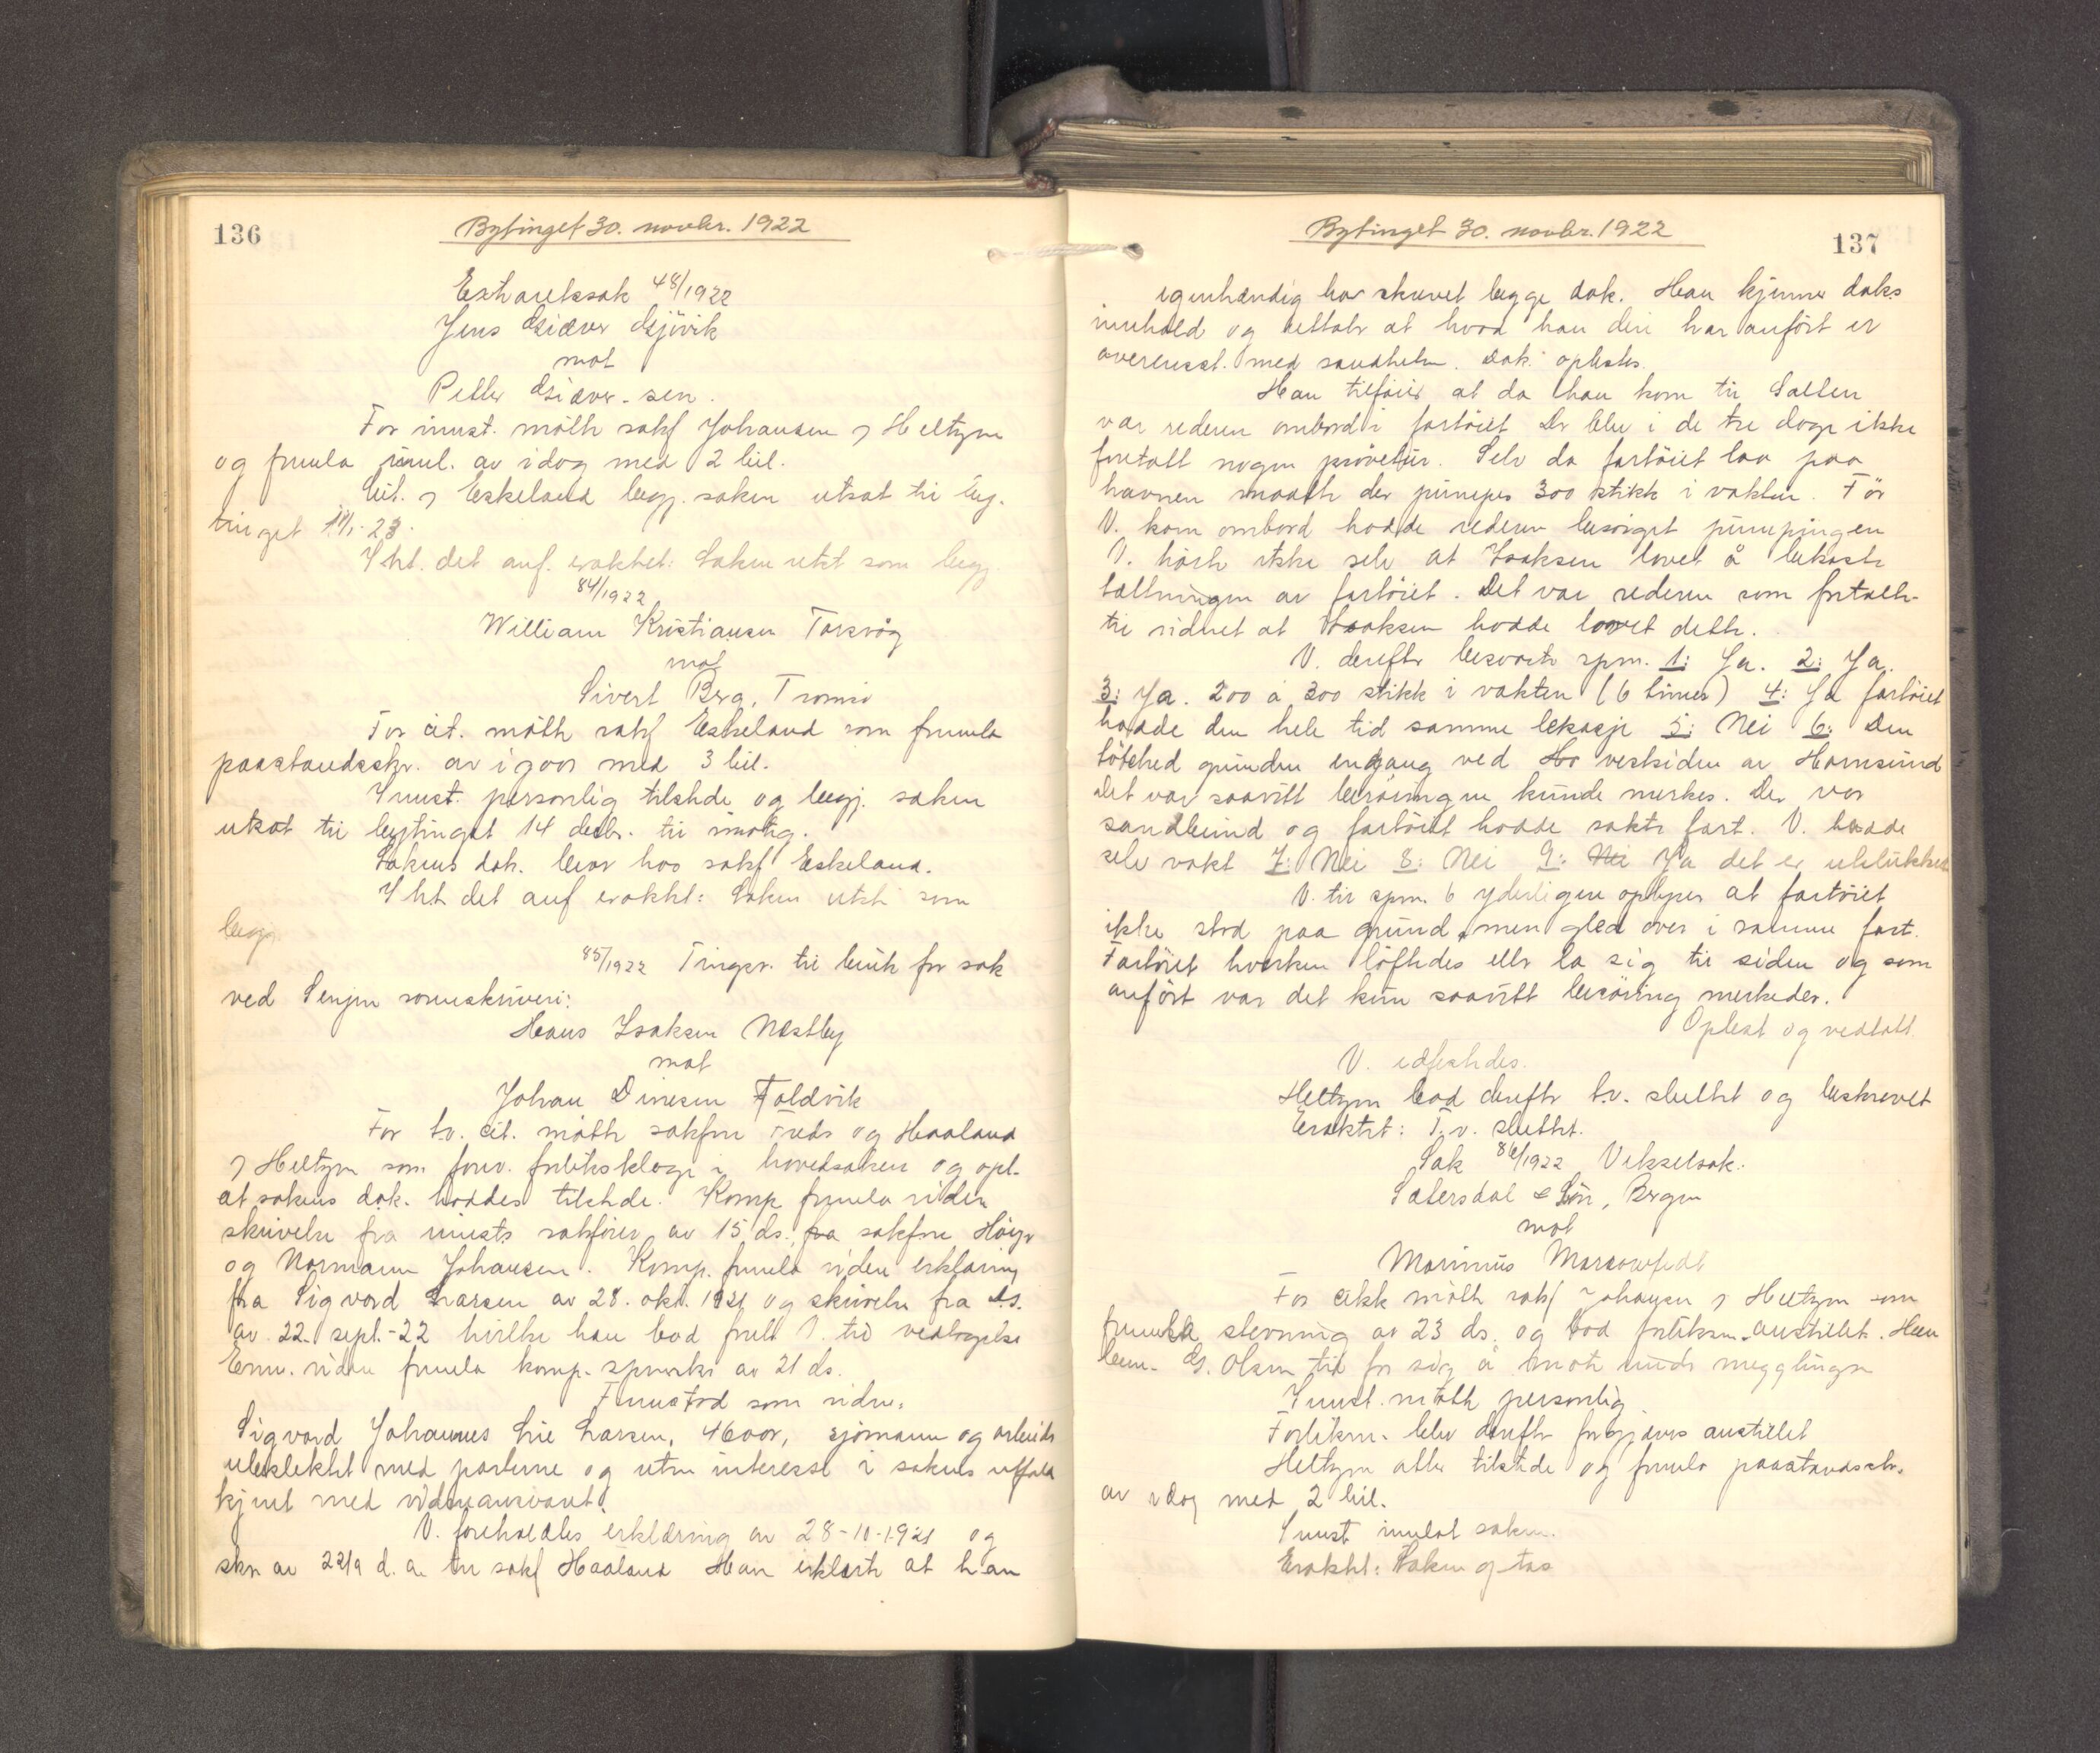 136
Bytinget 30. novbr. 1922
Extraretssak 48/1922
Jens Giæver Gjövik
mot
Petter Giæver sen.
For innst. mötte sakf Johansen v Heltzen
og fremla innl. av idag med 2 bil.
Cit. v Eskeland begj. saken utsat til by-
tinget 11/1-23.
I ht. det anf. eraktet: Saken utst som begj.
84/1922
William Kristiansen Torsvåg
mot
Sivert Bra, Tromsö
For cit. mötte sakf Eskeland som fremla
paastandsskr. av igaar med 3 bil.
Innst. personlig tilstede og begj. saken
utsat til bytinget 14 decbr. til imøteg.
Sakens dok. bevar hos sakf Eskeland.
I ht det anf eraktet: Saken utst som
begj.
85/1922 Tingsv. til bruk for sak
ved Senjen sorenskriveri:
Hans Isaksen Nestby
mot
Johan Dinesen Foldvik
For tv. cit. mötte sakfne Freds og Haaland
v Heltzen som forev. forliksklage i hovedsaken og opl.
at sakens dok. haddes tilstede. Komp fremla viden
skrivelse fra innsts sakförer av 15 ds. fra sakfne Höyer
og Normann Johansen. Komp. fremla viden erklæring
fra Sigvard Larsen av 28. okt. 1921 og skrivelse fra ds.
av 22. sept.-22 hvilke han bad forelt V. til vedtagelse
Enn. viden fremla komp. spmskr av 21 ds.
Fremstod som vidne:
Sigvard Johannes Lie Larsen, 46 aar, sjömann og arbeider
ubeslektet med parterne og uten interesse i sakens utfald
kjent med vidneansvaret.
V. foreholdtes erklæring av 28-10-1921 og
skr. av 22/9 d. a. til sakf Haaland Han erklærte at han
137
Bytinget 30. novbr. 1922
egenhændig har skrevet begge dok. Han kjenner doks
innhold og vedtar at hvad han deri har anfört er
overensst. med sandheten. Dok. oplestes.
Han tilföier at da han kom til Salten
var rederen ombord i fartöiet Der blev i de tre dage ikke
foretatt nogen prövetur. Selv da fartöiet laa paa
havnen maatte der pumpes 300 stikk i vakten. För
V. kom ombord hadde rederen besörget pumpingen
V. hörte ikke selv at Isaksen lovet å bekoste
tættningen av fartöiet. Det var rederen som fortalte
til vidnet at Isaksen hadde lovet dette.
V. derefter besvarte spm. 1: Ja. 2: Ja.
3: Ja. 200 à 300 stikk i vakten (6 timer) 4: Ja fartöiet
hadde den hele tid samme lekasje 5: Nei 6: Den
tötsched grunden engang ved Ho vestsiden av Hornsund
Det var saavitt beröringen kunde merkes. Der var
sandbund og fartöiet hadde sakte fart. V. hadde
selv vakt 7: Nei 8: Nei 9: Nei Ja det er utelukket
V. til spm. 6 yderligere oplyser at fartöiet
ikke stod paa grund, men gled over i samme fart.
Fartöiet hverken löftedes eller la sig til siden og som
anfört var det kun saavitt beröring merkedes.
Oplest og vedtatt.
V. edfestedes.
Heltzen bad derefter t.v. sluttet og beskrevet
Eraktet: T.v. sluttet.
Sak 86/1922 Vekselsak.
Sætersdal & Sön, Bergen
mot
Marinius
For citk mötte sakf Johansen v Heltzen som
fremla stevning av 23 ds. og bad forliksm. anstillet. Han
bem. G. Olsen til for sig å möte under meglingen
Innst. mötte personlig
Forliksm. blev derefter forgjæves anstillet
Heltzen atter tilstede og fremla paastandsskr.
av idag med 2 bil.
Innst. innlot saken.
Eraktet: Saken optas